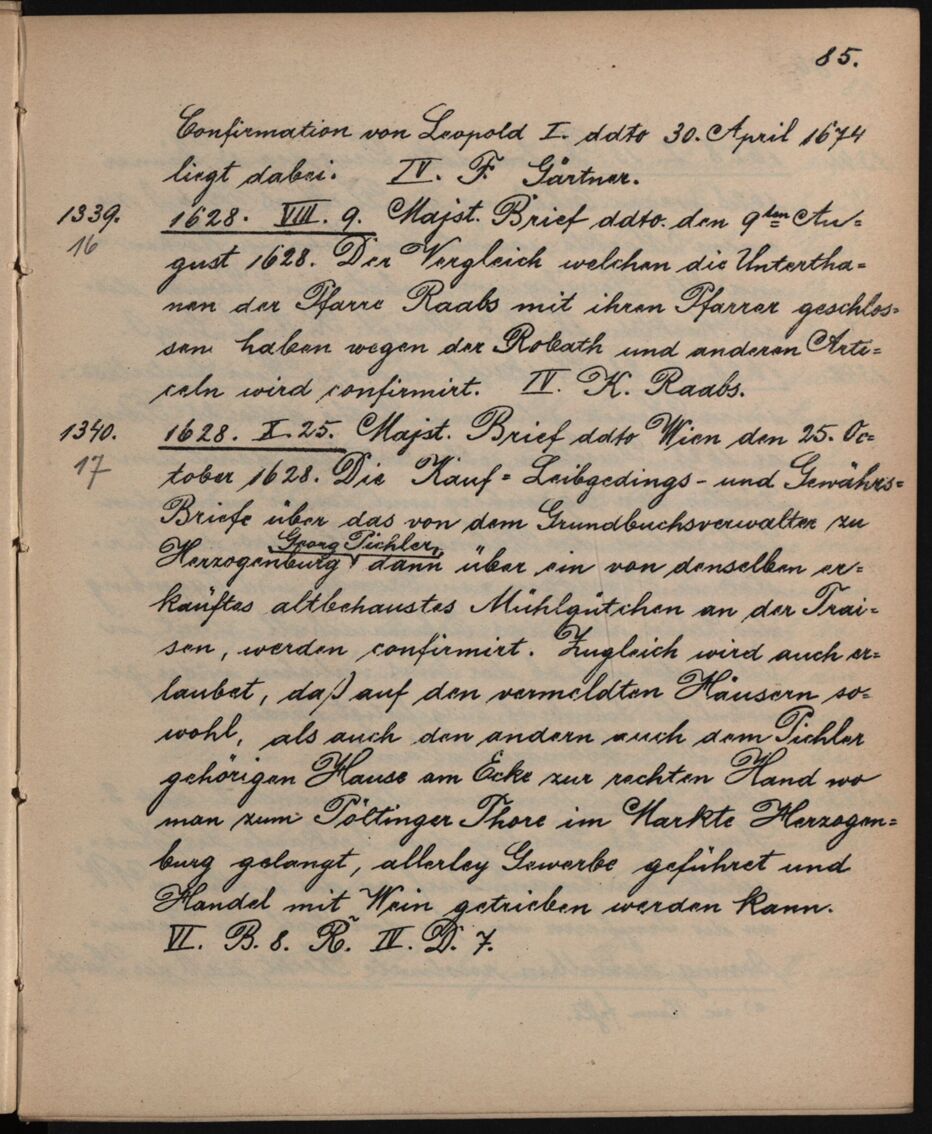 85.
Confirmation von Leopold I. ddto 30. April 1674
liegt dabei. IV. F. Gärtner.
1339. 1628. VIII. 9. Majst. Brief ddto. den 9ten Au=
16
gust 1628. Der Vergleich welchen die Untertha=
nen der Pfarre Raabs mit ihren Pfarrer geschlos=
sen haben wegen der Robath und anderen Arti=
celn wird confirmirt. IV. K. Raabs.
1340. 1628. X. 25. Majst. Brief ddto Wien den 25. Oc=
17
tober 1628. Die Kauf= Leibgedings- und Gewährs=
Briefe über das von dem Grundbuchsverwalter zu
Georg Pichler,
Herzogenburg dann über ein von denselben er=
kauftes altbehaustes Mühlgütchen an der Trai=
sen, werden confirmirt. Zugleich wird auch er=
laubet, daß auf den vermeldten Häusern so=
wohl, als auch den andern auch dem Pichler
gehörigen Hause am Ecke zur rechten Hand wo
man zum Pöltinger Thore im Markte Herzogen=
burg gelangt, allerley Gewerbe geführet und
Handel mit Wein getrieben werden kann.
VI. B. 8. R. IV. D. 7.